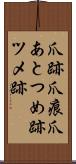 爪跡爪痕爪
あとつめ跡
ツメ跡